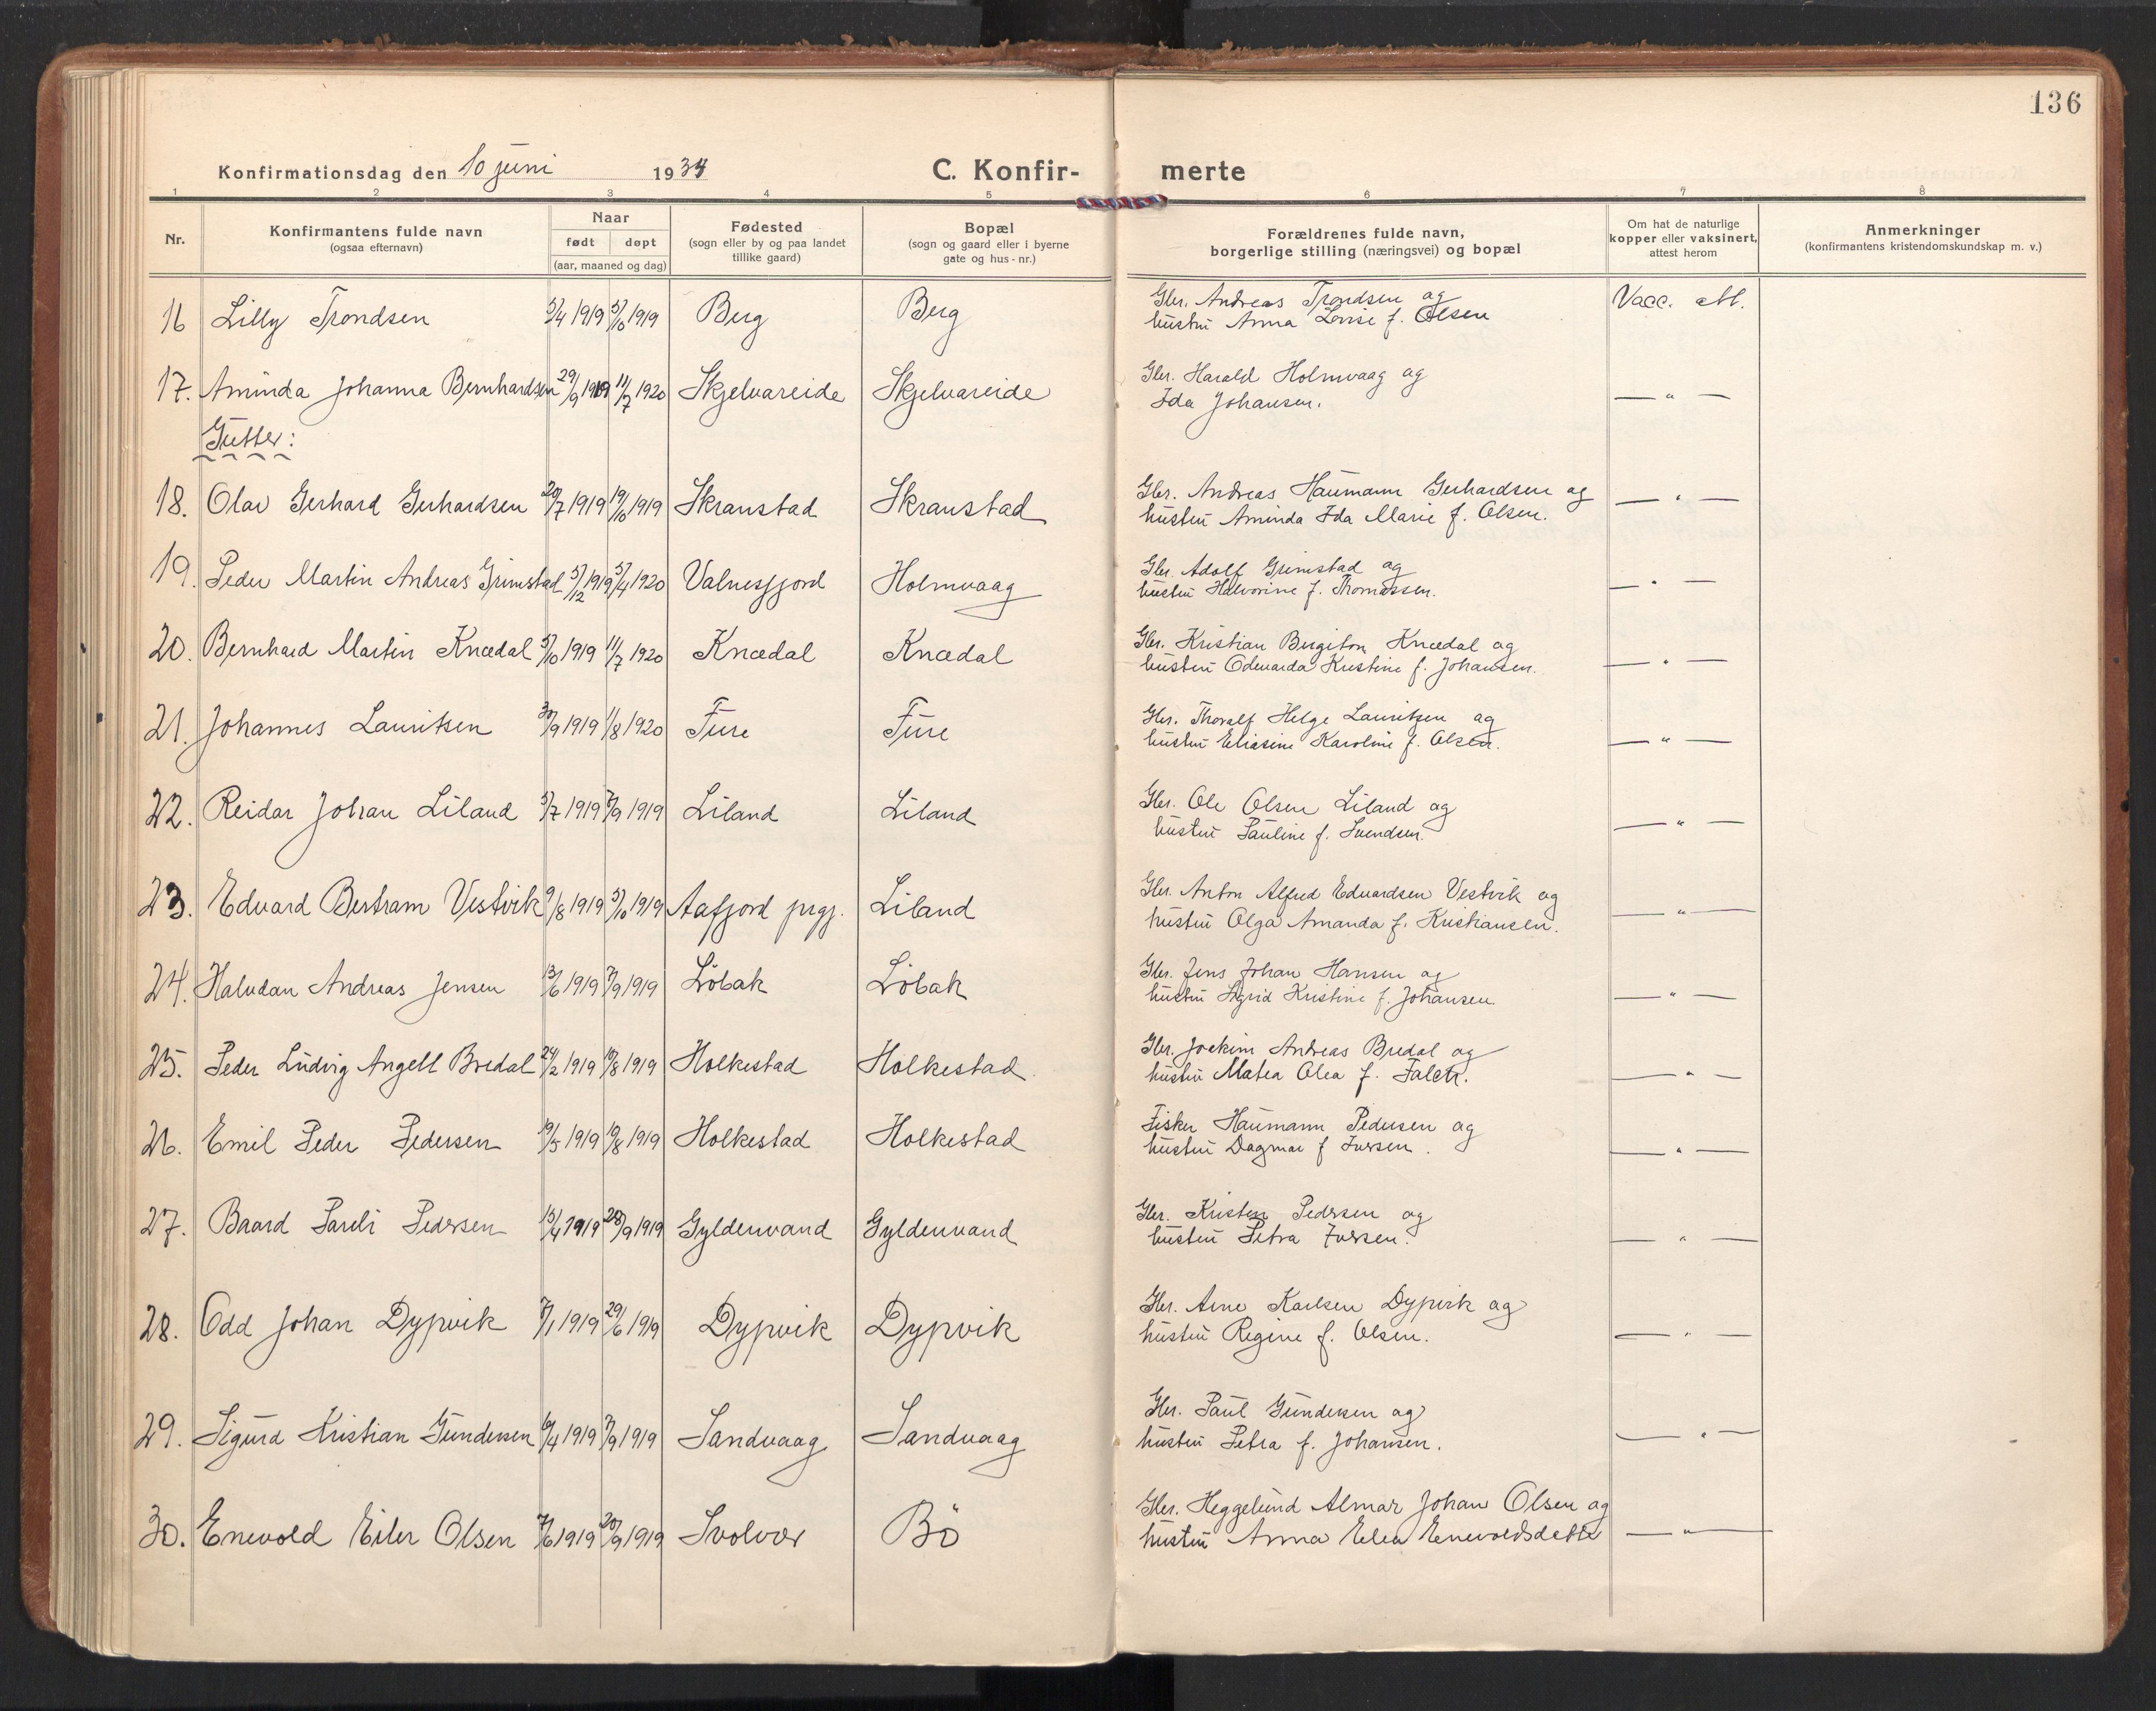 136
Konfirmationsdag den 10 juni 1934
C. Konfir- merte
1 2 3 4 5 6 7 8
Nr.
Konfirmantens fulde navn
(ogsaa efternavn)
Naar
født døpt
(aar, maaned og dag)
Fødested
(sogn eller by og paa landet
tillike gaard)
Bopæl
(sogn og gaard eller i byerne
gate og hus-nr.)
Forældrenes fulde navn,
borgerlige stilling (næringsvei) og bopæl
Om hat de naturlige
kopper eller vaksinert,
attest herom
Anmerkninger
(konfirmantens kristendomskundskap m. v.)
16 Lilly Trondsen 5/4 1919 5/10 1919 Berg Berg Gbr. Andreas Trondsen og Vacc. att.
hustru Anna Lovise f. Olsen
17. Aminda Johanna Bernhardsen 29/9 1919 11/7 1920 Skjelvareide Skjelvareide Gbr. Harald Holmvaag og
Ida Johansen. — " —
Gutter:
18. Olav Gerhard Gerhardsen 20/7 1919 19/10 1919 Skranstad Skranstad Gbr. Andreas Haumann Gerhardsen og — " —
hustru Aminda Ida Marie f. Olsen.
19. Peder Martin Andreas Grimstad 5/12 1919 5/4 1920 Valnesfjord Holmvaag Gbr. Adolf Grimstad og
hustru Halvorine f. Thomassen. — " —
20. Bernhard Martin Knædal 5/10 1919 11/7 1920 Knædal Knædal Gbr. Kristian Bergiton Knædal og
hustru Edvarda Kristine f. Johansen. — " —
21. Johannes Lauritsen 30/9 1919 1/8 1920 Fure Fure Gbr. Thoralf Helge Lauritsen og
hustru Eliasine Karoline f. Olsen. — " —
22. Reidar Johan Liland 5/7 1919 7/9 1919 Liland Liland Gbr. Ole Olsen Liland og
hustru Pauline f. Svendsen. — " —
23. Edvard Bertram Vestvik 9/8 1919 5/10 1919 Aafjord prgj. Liland Gbr. Anton Alfred Edvardsen Vestvik og
hustru Olga Amanda f. Kristiansen. — " —
24. Halvdan Andreas Jensen 13/6 1919 7/9 1919 Löbak Löbak Gbr. Jens Johan Hansen og
hustru Sigrid Kristine f. Johansen. — " —
25. Peder Ludvig Angell Bredal 24/2 1919 10/8 1919 Holkestad Holkestad Gbr. Joekim Andreas Bredal og
hustru Matea Olea f. Falch. — " —
26. Emil Peder Pedersen 19/5 1919 10/8 1919 Holkestad Holkestad Fisker Haumann Pedersen og
hustru Dagmar f Iversen. — " —
27. Baard Pareli Pedersen 15/4 1919 28/9 1919 Gyldenvand Gyldenvand Gbr. Kristen Pedersen og
hustru Petra Iversen. — " —
28. Odd Johan Dypvik 7/1 1919 29/6 1919 Dypvik Dypvik Gbr. Arne Karlsen Dypvik og
hustru Regine f. Olsen. — " —
29. Sigurd Kristian Gundersen /4 1919 7/9 1919 Sandvaag Sandvaag Gbr. Paul Gundersen og
hustru Petra f. Johansen. — " —
30. Enevold Eiler Olsen 7/6 1919 20/9 1919 Svolvær Bö Gbr. Heggelund Almar Johan Olsen og
hustru Anna Elea Enevoldsdatter — " —